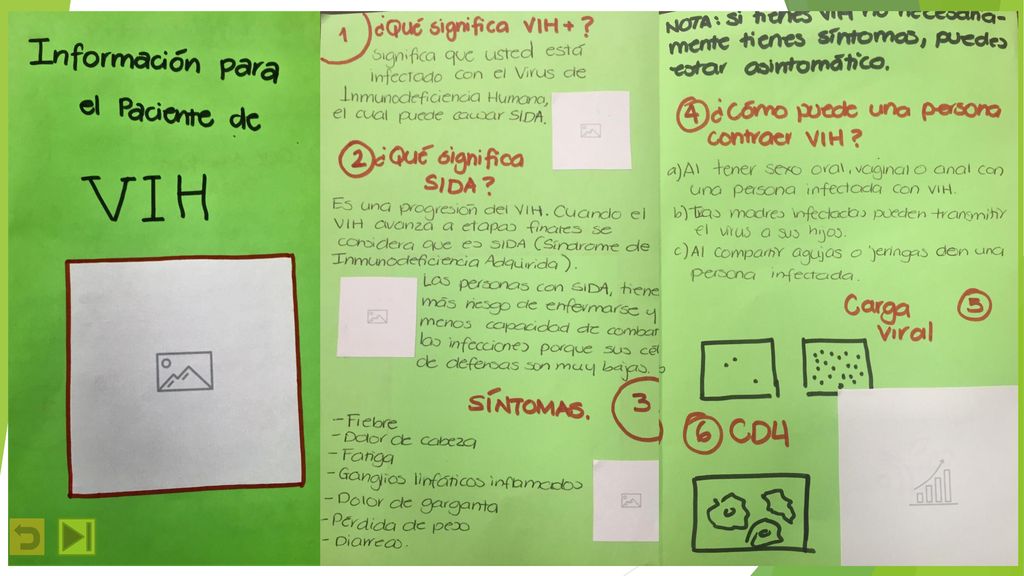 Información para
el Paciente de
VIH
1 ¿Qué significa VIH+?
Significa que usted está
infectado con el Virus de
Inmunodeficiencia Humana,
el cual puede causar SIDA.
2 ¿Qué significa
SIDA?
Es una progresión del VIH. Cuando el
VIH avanza a etapas finales se
considera que es SIDA (Síndrome de
Inmunodeficiencia Adquirida).
Las personas con SIDA, tiene
más riesgo de enfermarse y
menos capacidad de combat
las infecciones porque sus cél
de defensas son muy bajas.
SÍNTOMAS. 3
- Fiebre
- Dolor de cabeza
- Fatiga
- Ganglios linfáticos inflamados
- Dolor de garganta
- Pérdida de peso
- Diarreas.
NOTA: Si tienes VIH no necesaria-
mente tienes síntomas, puedes
estar asintomático.
4 ¿Cómo puede una persona
contraer VIH?
a) Al tener sexo oral, vaginal o anal con
una persona infectada con VIH.
b) Las madres infectadas pueden transmitir
el virus a sus hijos.
c) Al compartir agujas o jeringas den una
persona infectada.
Carga 5
Viral
6 CD4